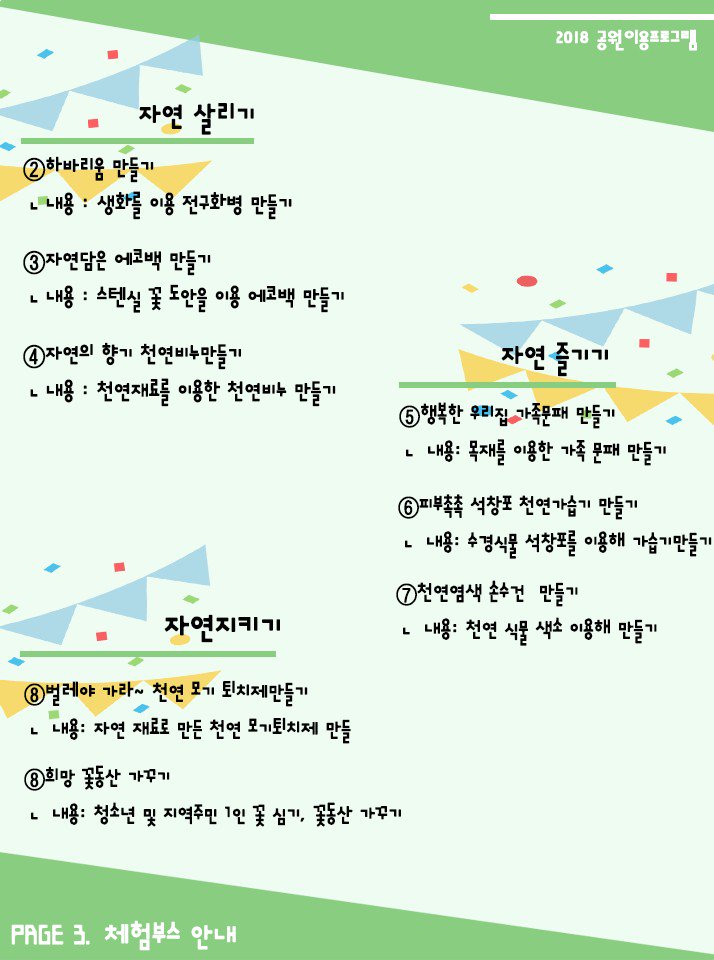 2018 공원이용프로그램
자연 살리기
②하바리움 만들기
ㄴ 내용 : 생화를 이용 전구화병 만들기
③자연담은 에코백 만들기
ㄴ 내용 : 스텐실 꽃 도안을 이용 에코백 만들기
④자연의 향기 천연비누만들기
ㄴ 내용 : 천연재료를 이용한 천연비누 만들기
자연 즐기기
⑤행복한 우리집 가족문패 만들기
ㄴ 내용: 목재를 이용한 가족 문패 만들기
⑥피부촉촉 석창포 천연가습기 만들기
ㄴ 내용: 수경식물 석창포를 이용해 가습기만들기
⑦천연염색 손수건 만들기
ㄴ 내용: 천연 식물 색소 이용해 만들기
자연지키기
⑧벌레야 가라~ 천연 모기 퇴치제만들기
ㄴ 내용: 자연 재료로 만든 천연 모기퇴치제 만들
⑧희망 꽃동산 가꾸기
ㄴ 내용: 청소년 및 지역주민 1인 꽃 심기, 꽃동산 가꾸기
PAGE 3. 체험부스 안내